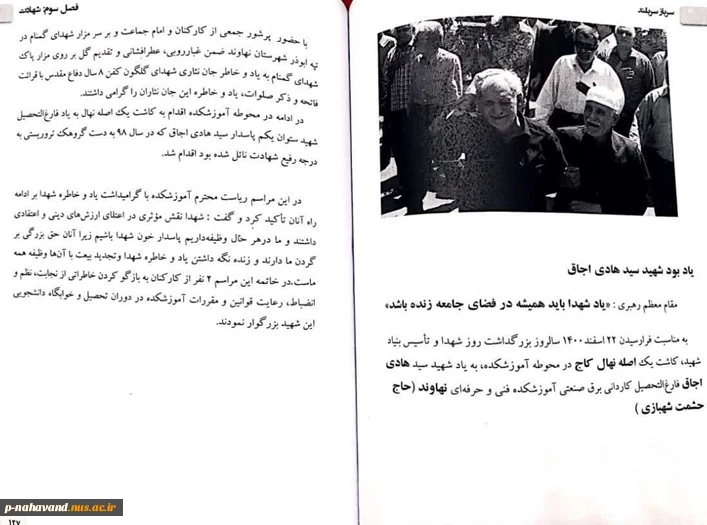 سرباز سربلند
یاد بود شهید سید هادی اجاق
مقام معظم رهبری : «یاد شهدا باید همیشه در فضای جامعه زنده باشد»
به مناسبت فرارسیدن ۲۲ اسفند ۱۴۰۰ سالروز بزرگداشت روز شهدا و تأسیس بنیاد
شهید، کاشت یک اصله نهال کاج در محوطه آموزشکده، به یاد شهید سید هادی
اجاق فارغ‌التحصیل کاردانی برق صنعتی آموزشکده فنی و حرفه‌ای نهاوند (حاج
حشمت شهبازی )
فصل سوم: شهادت
با حضور پرشور جمعی از کارکنان و امام جماعت و بر سر مزار شهدای گمنام در
تپه ابوذر شهرستان نهاوند ضمن غبارروبی، عطرافشانی و تقدیم گل بر روی مزار پاک
شهدای گمنام به یاد و خاطر جان نثاری شهدای گلگون کفن ۸ سال دفاع مقدس با قرائت
فاتحه و ذکر صلوات، یاد و خاطره این جان نثاران را گرامی داشتند.
در ادامه در محوطه آموزشکده اقدام به کاشت یک اصله نهال به یاد فارغ‌التحصیل
شهید ستوان یکم پاسدار سید هادی اجاق که در سال ۹۸ به دست گروهک تروریستی به
درجه رفیع شهادت نائل شده بود اقدام شد.
در این مراسم ریاست محترم آموزشکده با گرامیداشت یاد و خاطره شهدا بر ادامه
راه آنان تأکید کرد و گفت : شهدا نقش مؤثری در اعتلای ارزش‌های دینی و اعتقادی
داشتند و ما درهر حال وظیفه‌داریم پاسدار خون شهدا باشیم زیرا آنان حق بزرگی بر
گردن ما دارند و زنده نگه داشتن یاد و خاطره شهدا وتجدید بیعت با آن‌ها وظیفه همه
ماست.در خاتمه این مراسم ۲ نفر از کارکنان به بازگو کردن خاطراتی از نجابت، نظم و
انضباط، رعایت قوانین و مقررات آموزشکده در دوران تحصیل و خوابگاه دانشجویی
این شهید بزرگوار نمودند.
۱۲۷
p-nahavand.nus.ac.ir